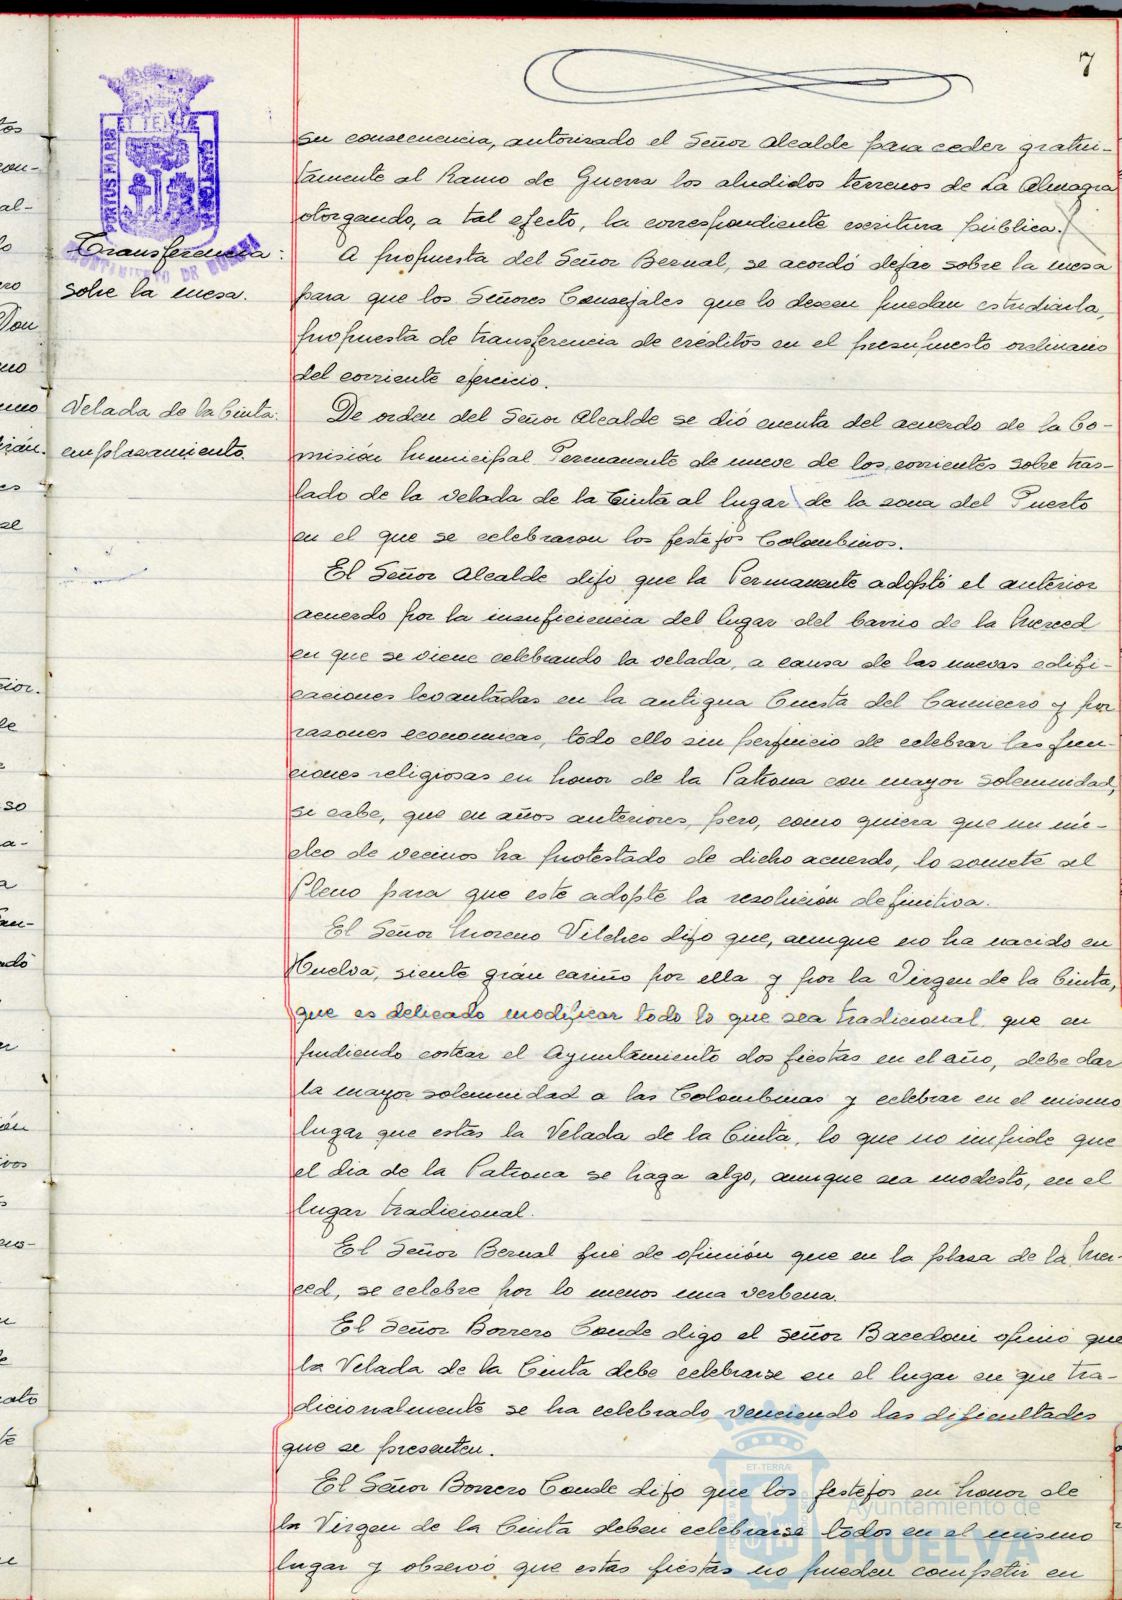 7
su consecuencia, autorizado el Señor Alcalde para ceder gratui-
tamente al Ramo de Guerra los aludidos terrenos de La Almagra
otorgando, a tal efecto, la correspondiente escritura pública.
Transferencia:
sobre la mesa.
A propuesta del Señor Bernal, se acordó dejar sobre la mesa
para que los Señores Concejales que lo deseen puedan estudiarla,
propuesta de transferencia de créditos en el presupuesto ordinario
del corriente ejercicio.
Velada de la Cinta:
emplazamiento.
De orden del Señor Alcalde se dió cuenta del acuerdo de la Co-
misión Municipal Permanente de nueve de los corrientes sobre tras-
lado de la velada de la Cinta al lugar de la zona del Puerto
en el que se celebraron los festejos Colombinos.
El Señor Alcalde dijo que la Permanente adoptó el anterior
acuerdo por la insuficiencia del lugar del barrio de la Merced
en que se viene celebrando la velada, a causa de las nuevas edifi-
caciones levantadas en la antigua Cuesta del Carnicero y por
razones economicas, todo ello sin perjuicio de celebrar las fun-
ciones religiosas en honor de la Patrona con mayor solemnidad,
si cabe, que en años anteriores, pero, como quiera que un nú-
cleo de vecinos ha protestado de dicho acuerdo, lo somete al
Pleno para que este adopte la resolución definitiva.
El Señor Moreno Vilches dijo que, aunque no ha nacido en
Huelva, siente grán cariño por ella y por la Virgen de la Cinta,
que es delicado modificar todo lo que sea tradicional, que en
pudiendo costear el Ayuntamiento dos fiestas en el año, debe dar
la mayor solemnidad a las Colombinas y celebrar en el mismo
lugar que estas la Velada de la Cinta, lo que no impide que
el dia de la Patrona se haga algo, aunque sea modesto, en el
lugar tradicional.
El Señor Bernal fué de opinión que en la plaza de la Mer-
ced, se celebre por lo menos una verbena.
El Señor Borrero Conde digo el señor Bacedoni opinó que
la Velada de la Cinta debe celebrarse en el lugar en que tra-
dicionalmente se ha celebrado venciendo las dificultades
que se presenten.
El Señor Borrero Conde dijo que los festejos en honor de
la Virgen de la Cinta deben celebrarse todos en el mismo
lugar y observó que estas fiestas no pueden competir en
PORTUS MARIS
ET TERRÆ
CUSTODIA
AYUNTAMIENTO DE HUELVA
Ayuntamiento de
HUELVA